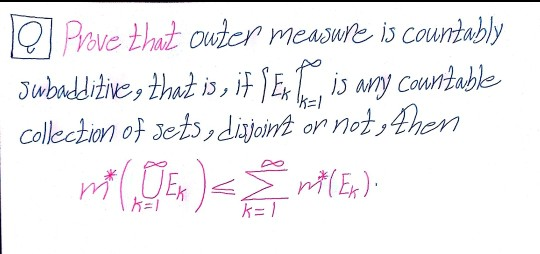 Q Prove that outer measure is countably
subadditive, that is, if {E_k}_{k=1}^∞ is any countable
collection of sets, disjoint or not, then
m*(⋃_{k=1}^∞ E_k) ≤ ∑_{k=1}^∞ m*(E_k).